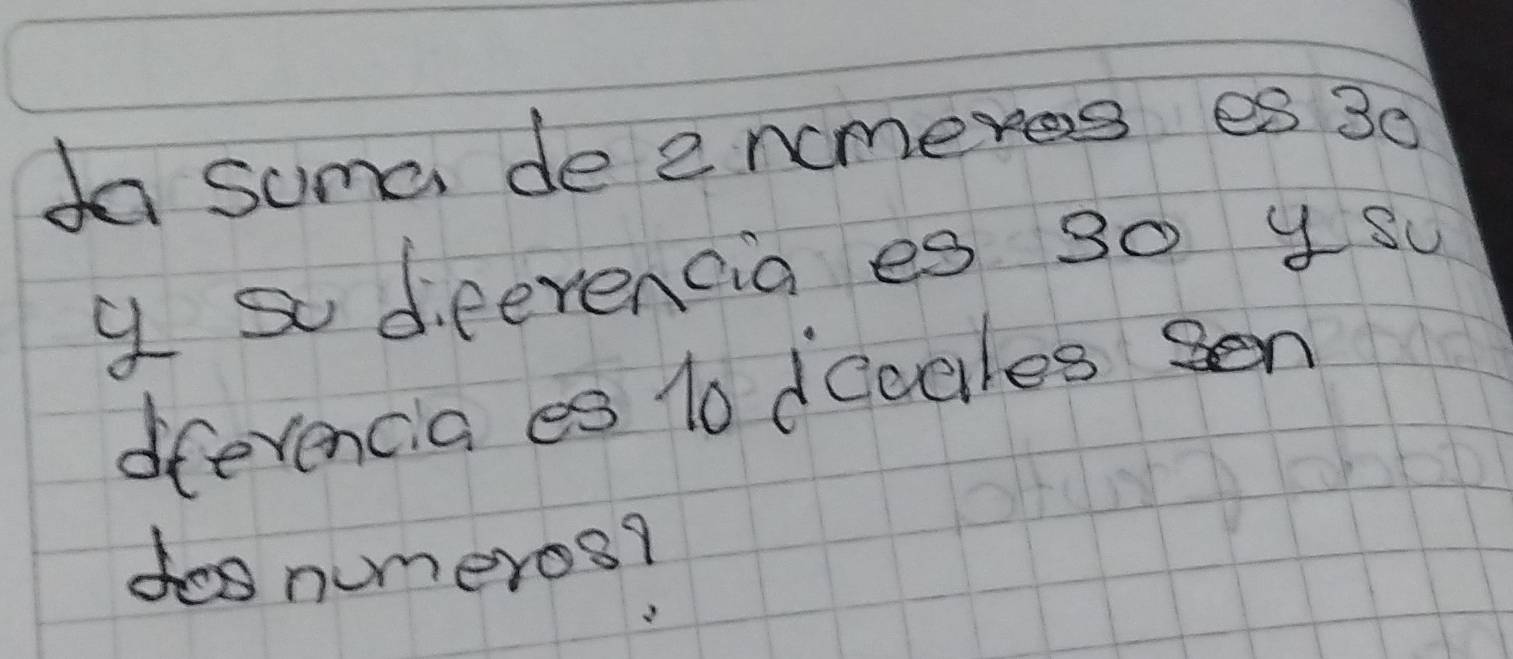 La suma de 2 numeros es 30
y su diferencia es 30 y su
diferencia es 10 ¿cuales son
los numeros?